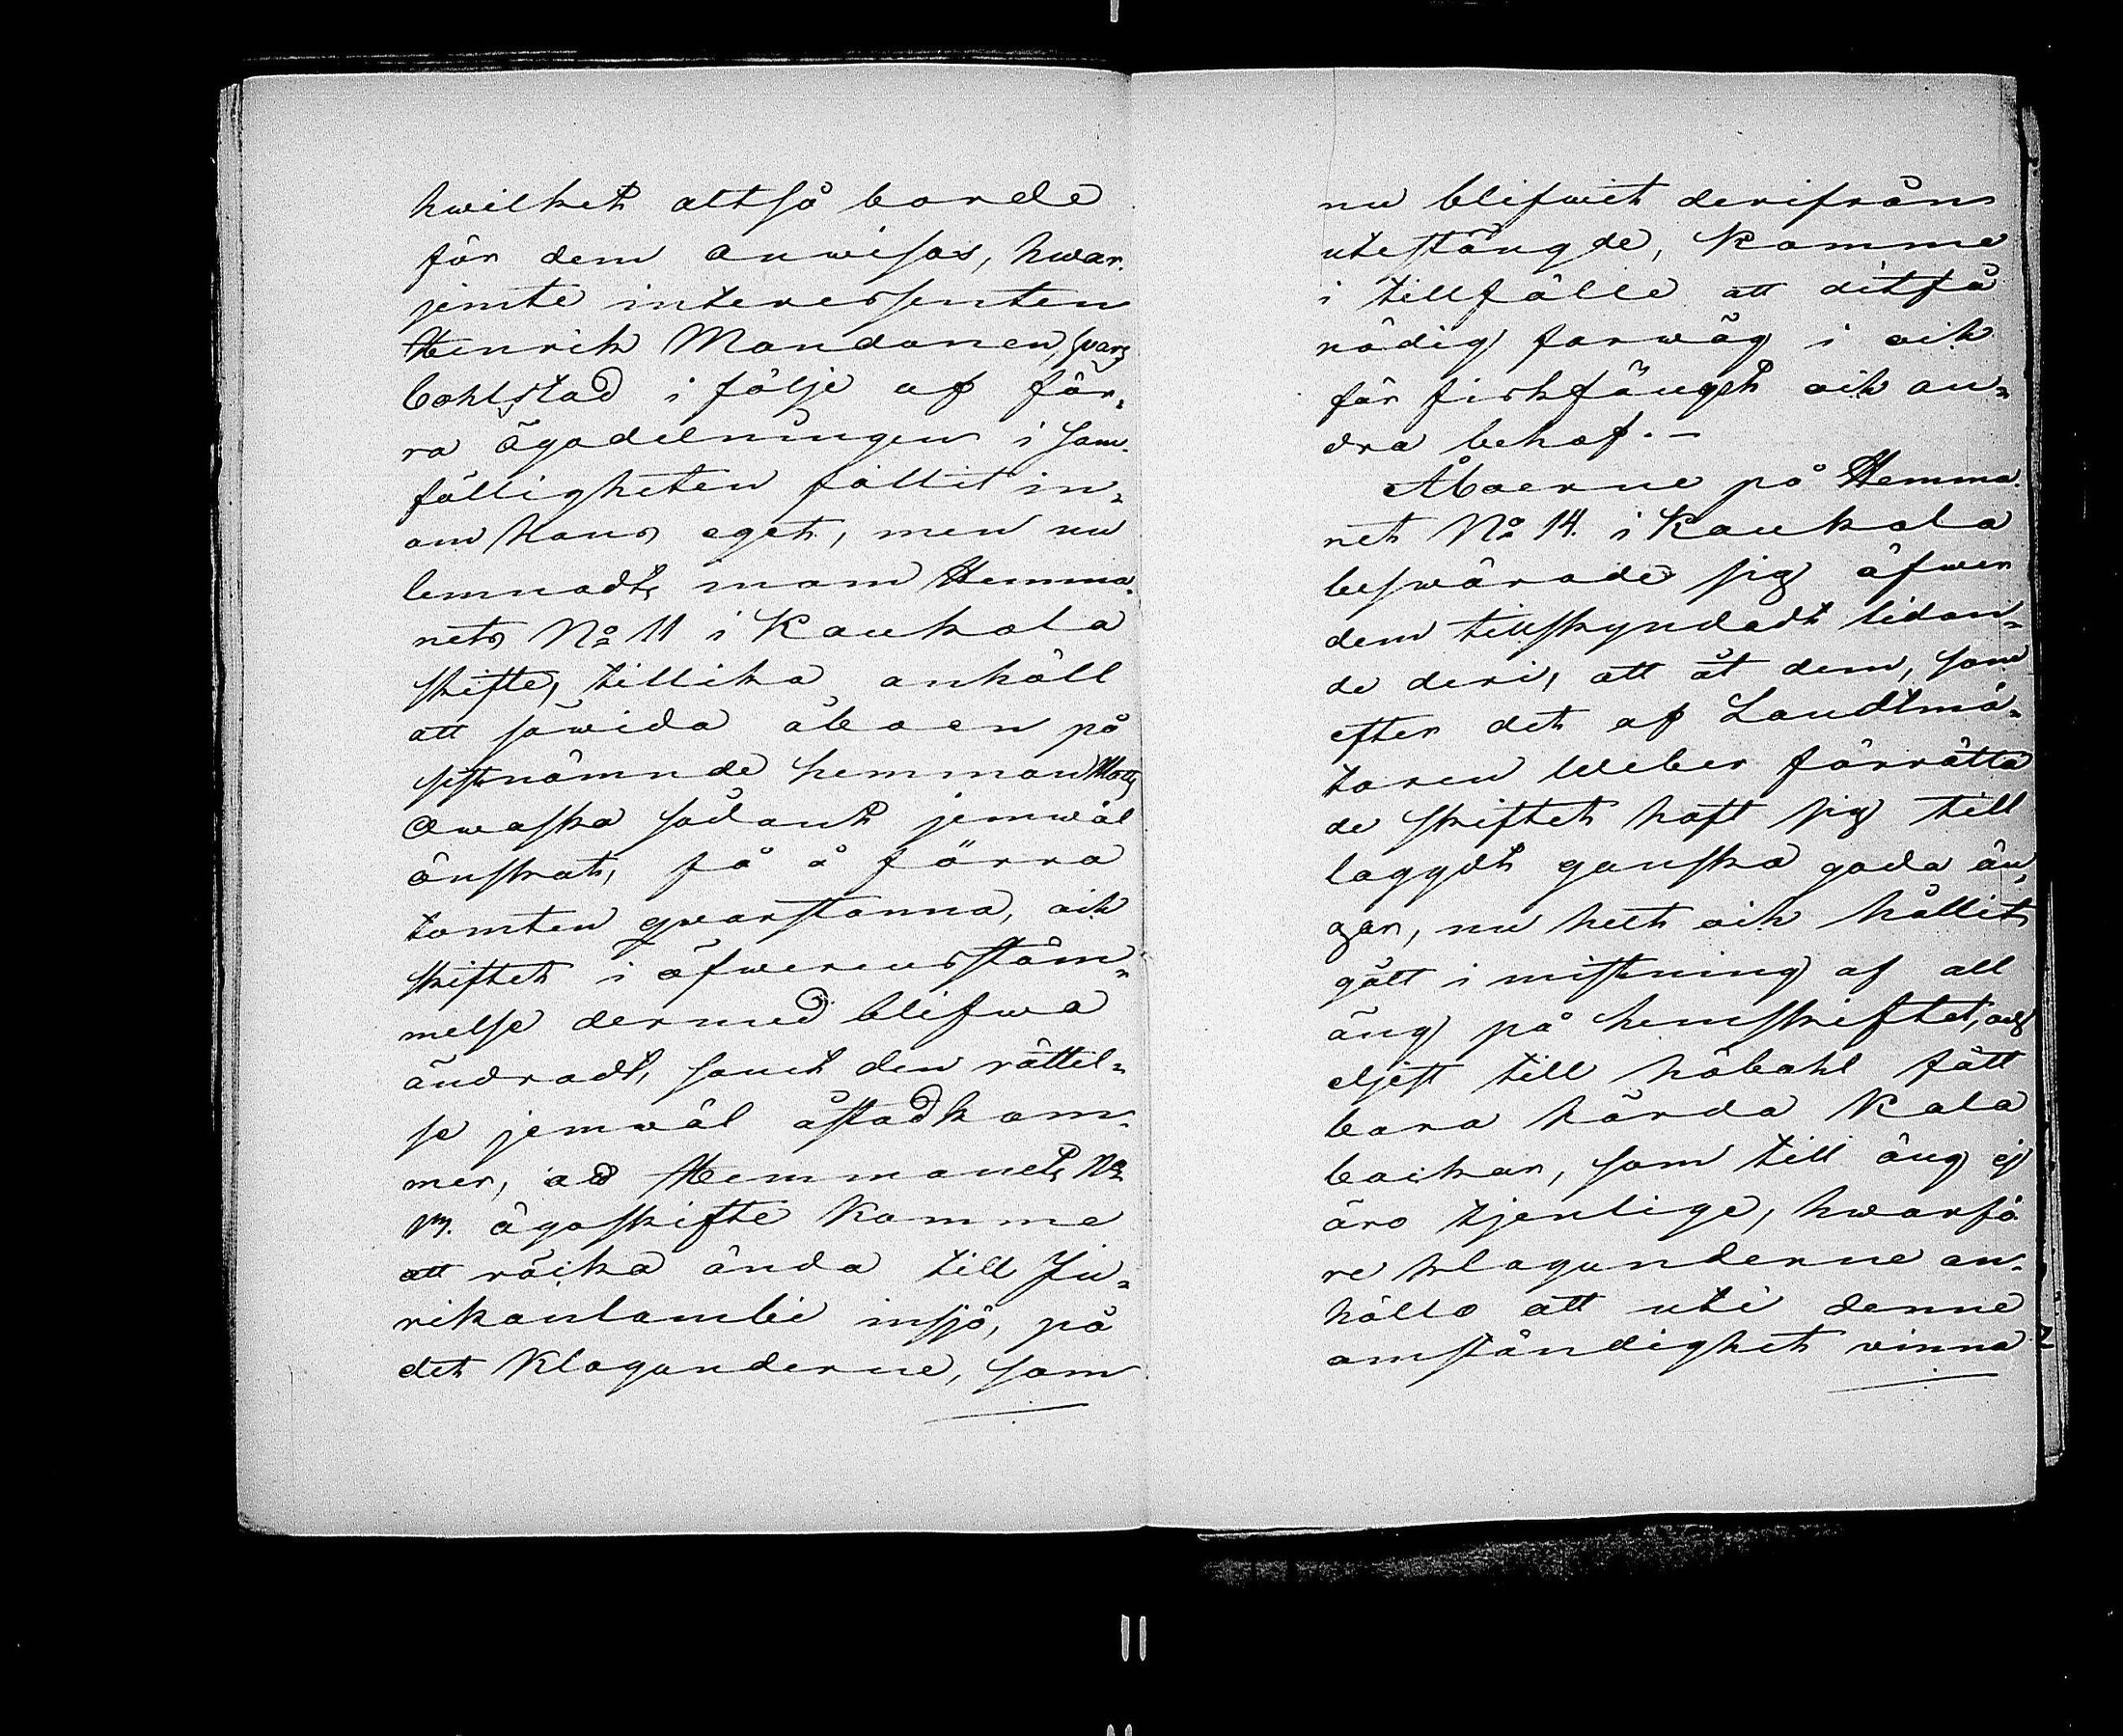 hwilket altså borde
för dem anwisas, hwar-
jemte interessenten
Henrik Mandonen, hvars
bohlstad i följe af för-
ra ägodelningen i sam-
fälligheten fallit in-
om hans eget, men nu
lemnadt, inom Hemma-
nets No 11 i Kaukola
skifte, tillika anhöll
att såwida åboen på
sistnämnde hemman Matts
Awaska sådant jemwäl
önskat, få å förra
tomten qwarstanna, och
skiftet i öfwerensstäm-
melse dermed blifwa
ändradt, samt den rättel-
se jemwäl åstadkom-
mer, att Hemmanets No
14. ägoskifte komme
att räcka ända till Ju-
rikanlambi insjö, på
det Klaganderne, som
nu blifwit derifrån
utestängde, komme
i tillfälle att ditfå
nödig farwäg i och
för fiskfänget och an-
dra behof.-
Åboerne på Hemma-
net No 14. i Kaukola
beswärade sig öfwer
dem tillskyndadt lidan-
de deri, att åt dem, som
efter det af Landtmä-
taren Weber förrätta
de skiftet haft sig till
laggdt ganska goda än-
gar, nu helt och hållit
gått i mistning af all
äng på hemskiftet, och
eljest till höbohl fått
bara hårda Kala
backar, som till äng ej
äro tjenlige, hwarfö
re klaganderne an-
höllo att uti denne
omständighet winna